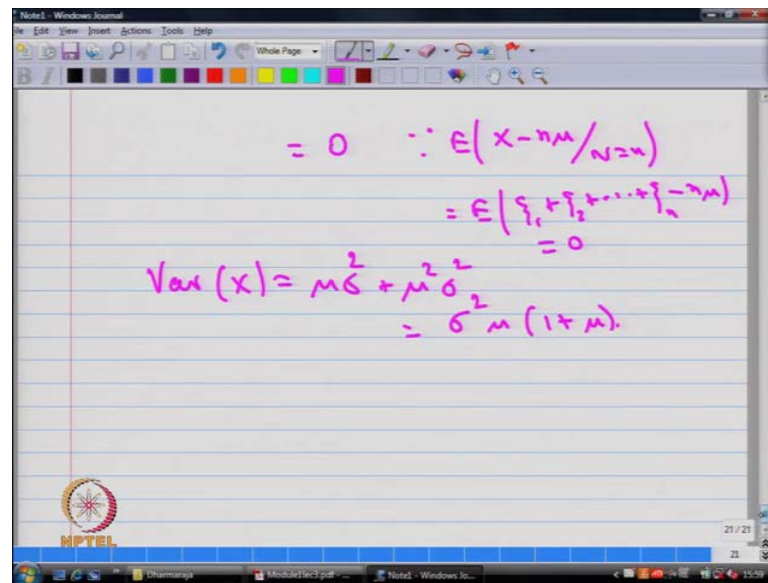 Note1 - Windows Journal
File Edit View Insert Actions Tools Help
Whole Page
B I
= 0 ∵ E(X - nμ / N=n)
= E(ξ₁ + ξ₂ + ... + ξₙ - nμ)
= 0
Var(X) = μσ² + μ²σ²
= σ²μ(1 + μ).
NPTEL
21 / 21
21
Dharmaraja Module1lec3.pdf - ... Note1 - Windows Jo... 15:59